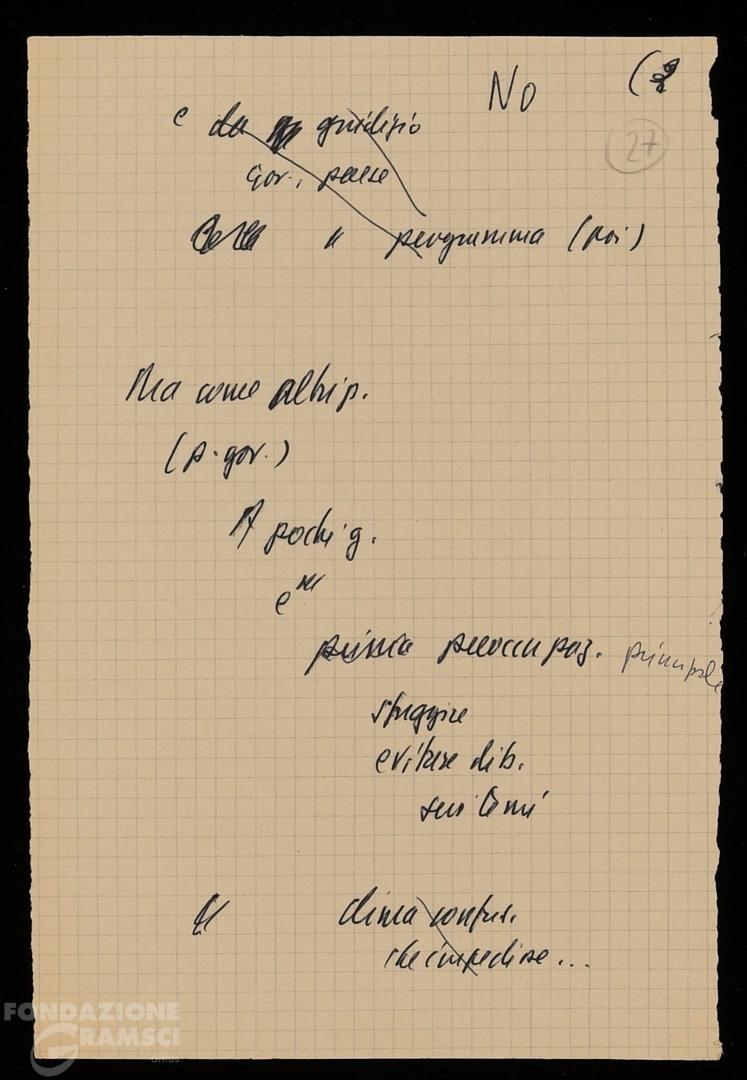 No (2
27
e da giudizio
gov., paese
" programma (poi)
Ma come altri p.
(p. gov.)
A pochi g.
e
prima preoccupaz. principale
sfuggire
evitare dib.
sui temi
clima confus.
che impedisse...
FONDAZIONE
GRAMSCI
onlus